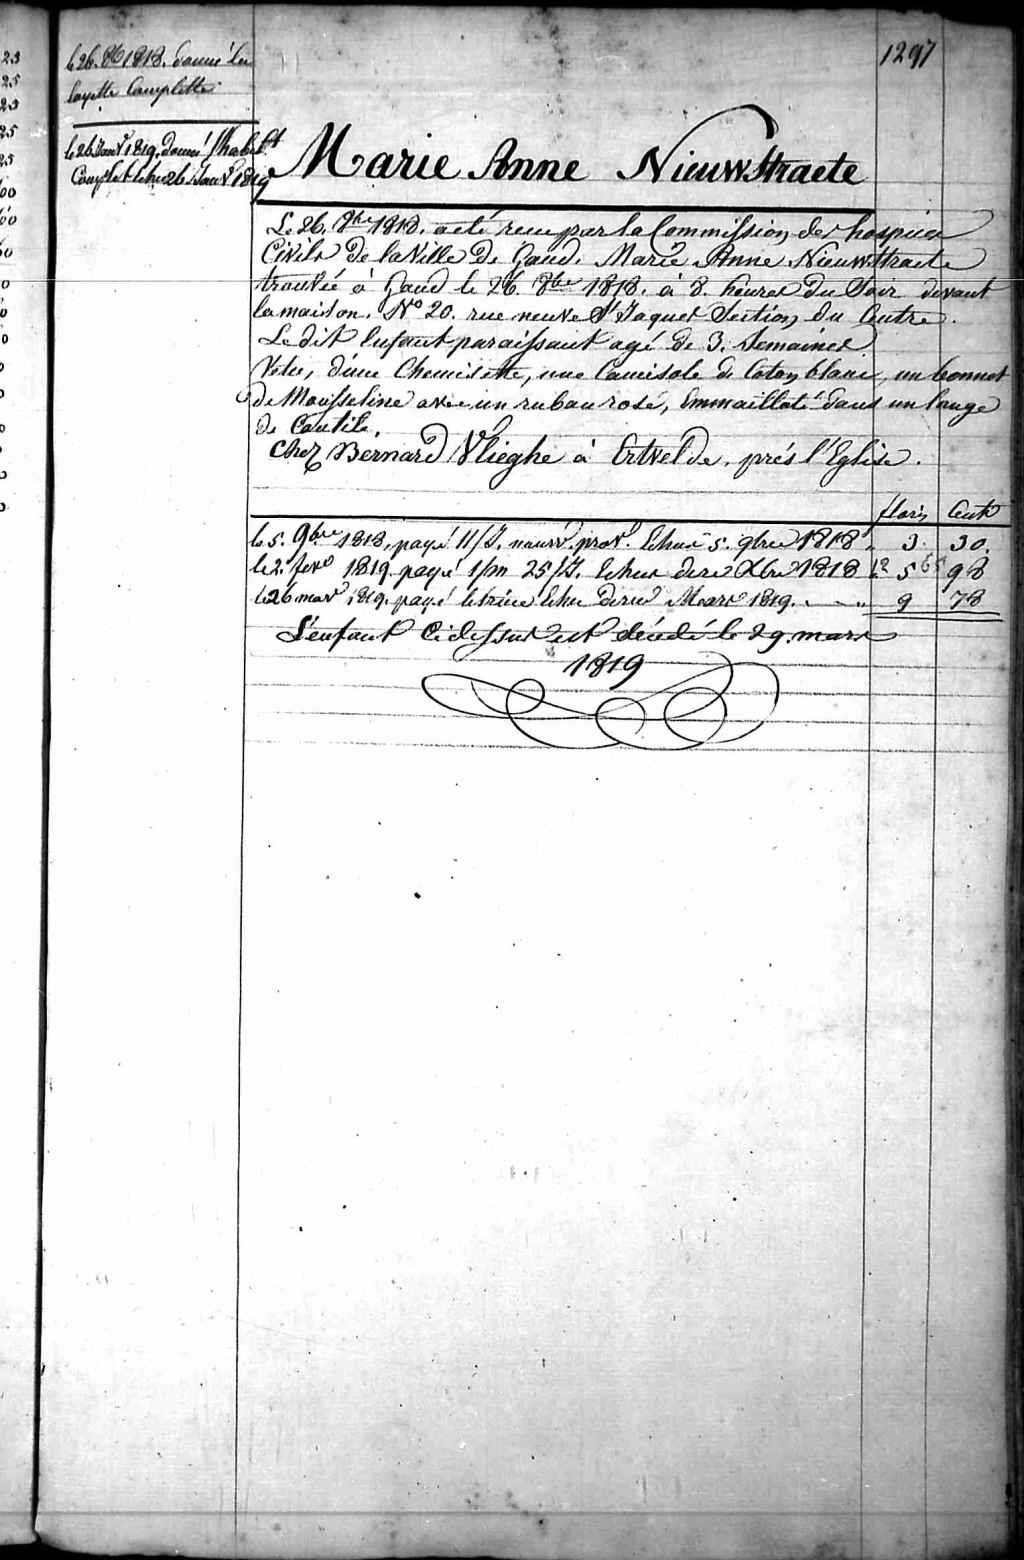 1297
le 26. 8b 1818. donné la
layette Complette
le 26 Janvr 1819. donné l'habillt
Complet échu 26 Janvr 1819
Marie Anne Nieuwstraete
Le 26. 8bre 1818. a été recu par la Commission des hospices
Civils de la Ville de Gand. Marie Anne Nieuwstraete
trouvée à Gand le 26. 8bre 1818. à 8. heures du Soir devant
la maison. No 20. rue neuve St Jaques Section du Centre.
Le dit Enfant paraissant agé de 3. Semaines
Vetu, d'une Chemisette, une Camisole de Coton blanc, un bonnet
de Mousseline avec un ruban rosé, Emmailloté dans un lange
de Coutile.
Chez Bernard Vlieghe à Ertvelde. prés l'Eglise.
florin Cents
le 5. 9bre 1818, payé 11/J. nourr. prov. Echu 5. 9bre 1818 " 3. 30.
le 2. fevr 1819. payé 1/m 25/J. Echu dere Xbre 1818 12 5 65 98
le 26 mars 1819. payé le trim Echu dere Mars 1819. " 9 78
L'enfant Cidessus est décédé le 29. mars
1819